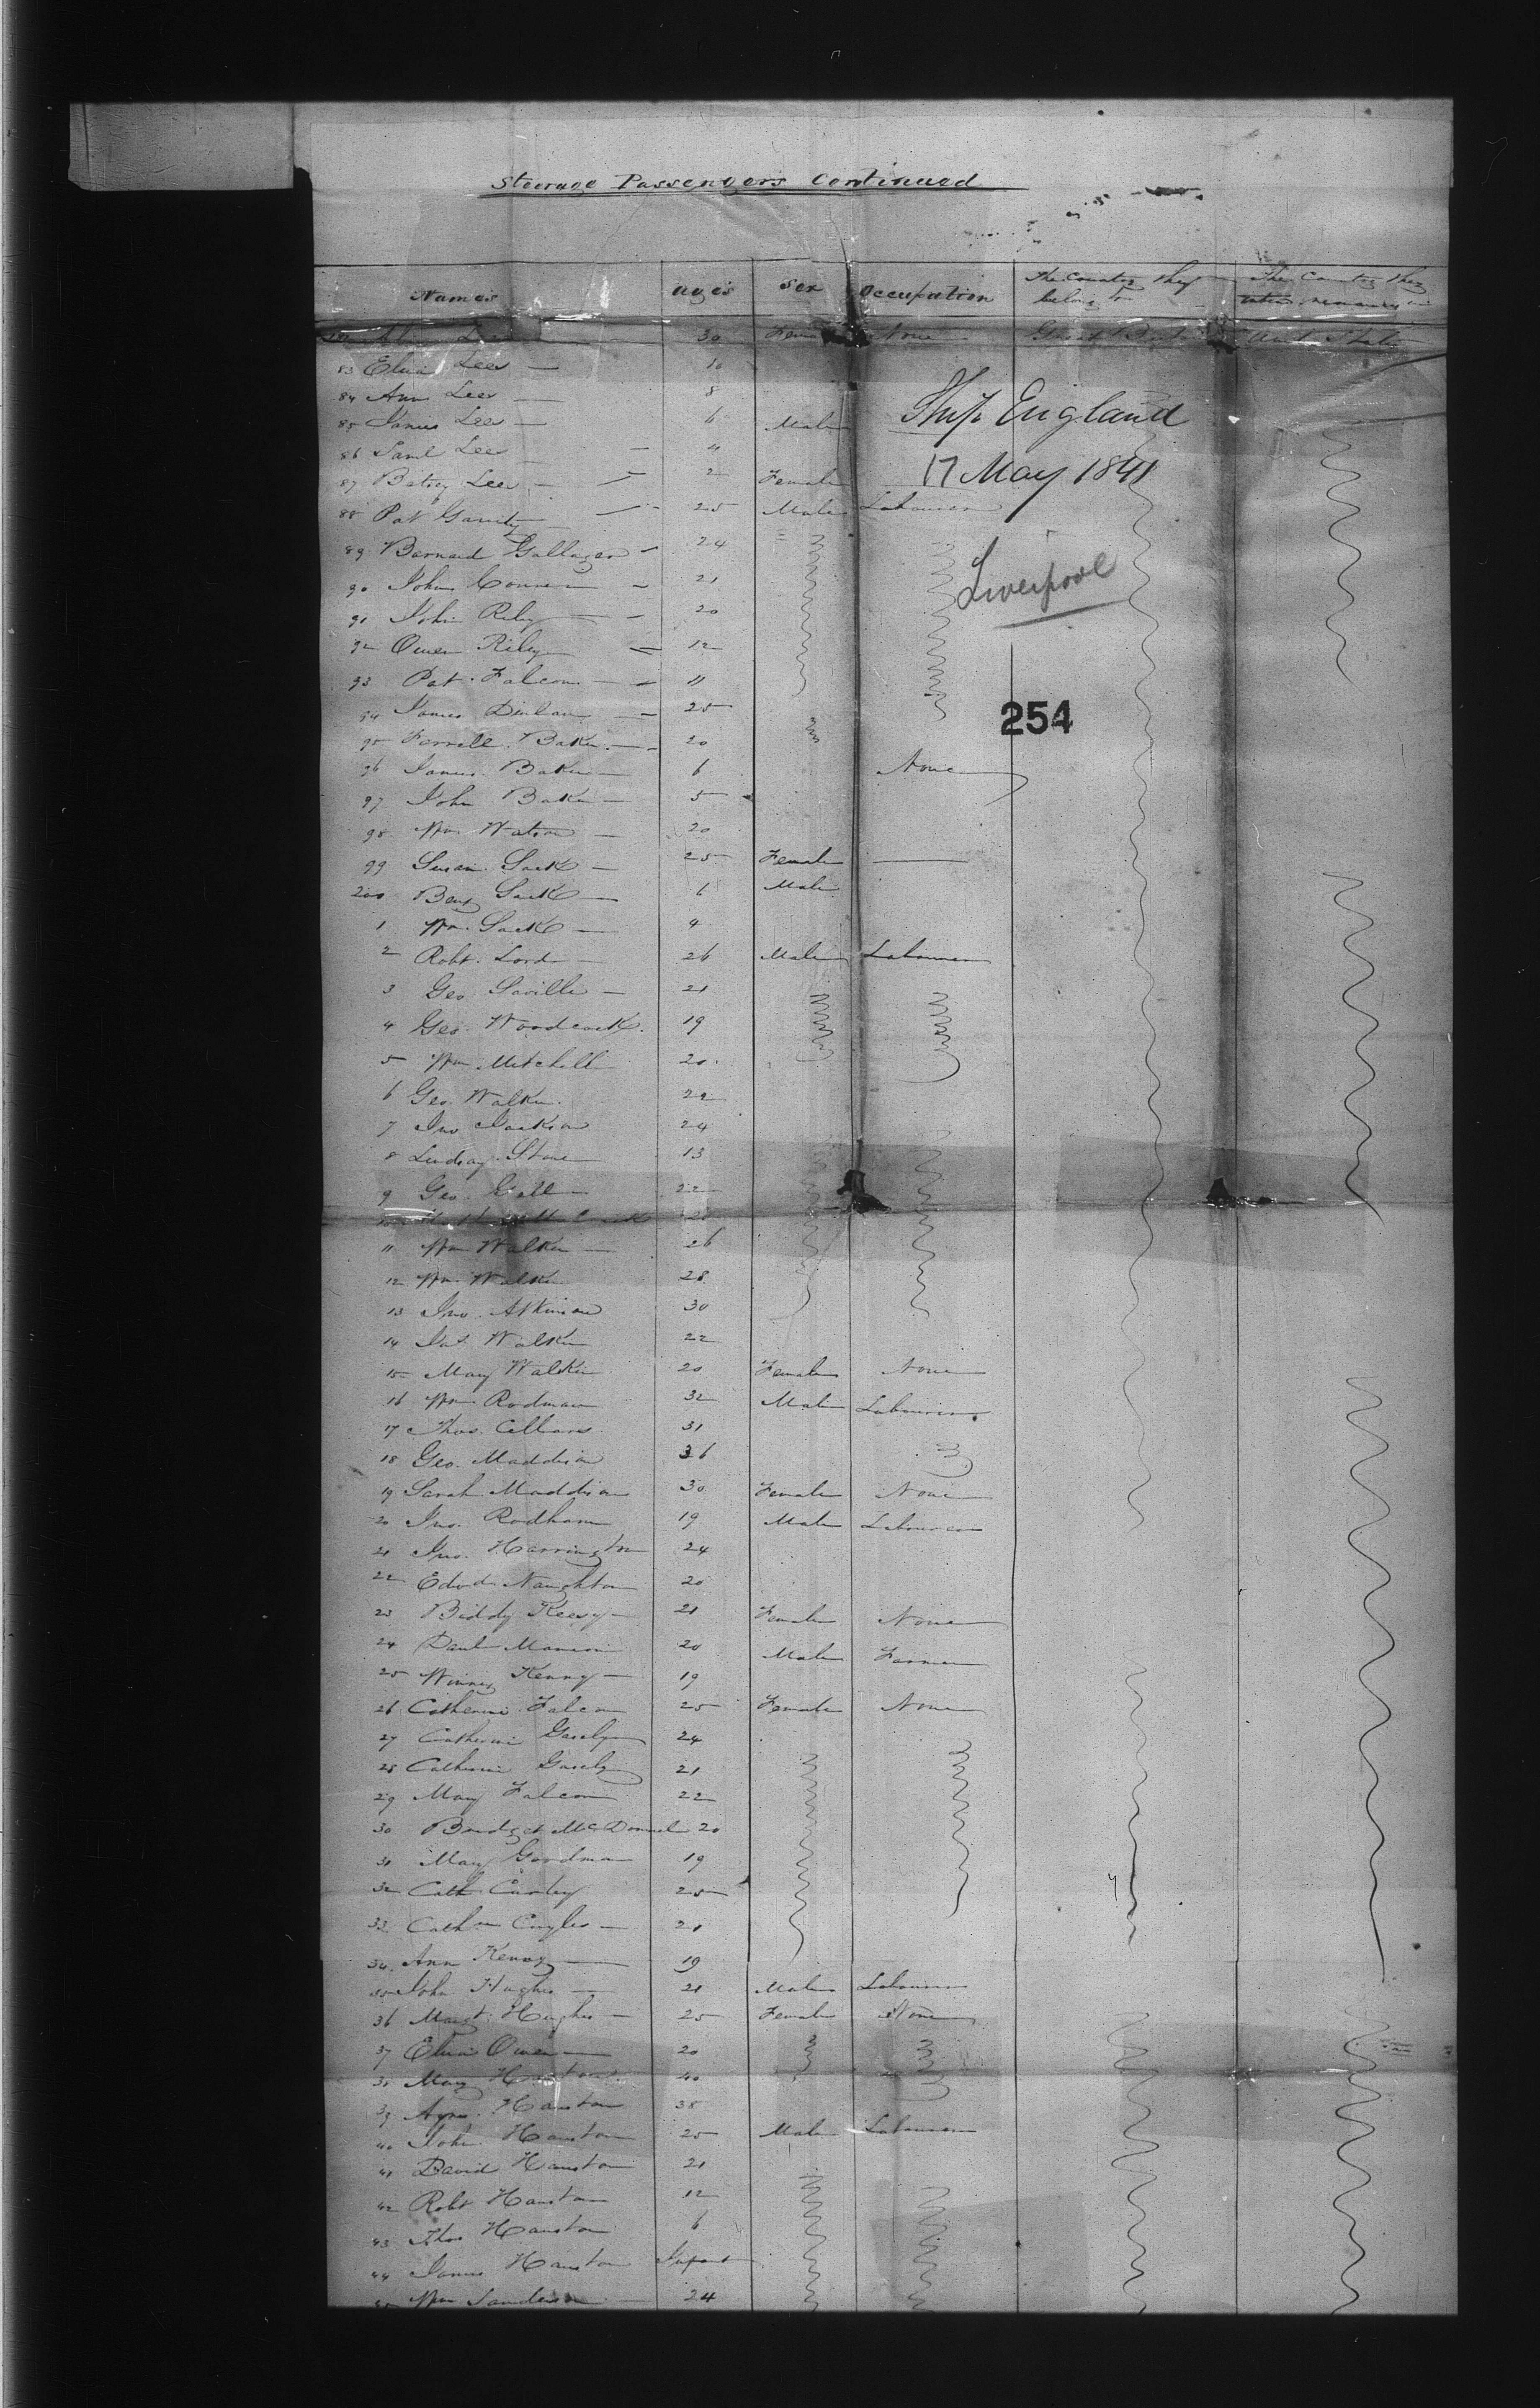 Steerage Passengers Continued
Names ages Sex Occupation The Country they belong to The Country they
30 None
83 Eliza Lees 10
84 Ann Lees 8
85 James Lees 6 Male
86 Saml Lees 4
87 Betsy Lees 2 Female
Ship England
17 May 1841
88 Pat Garrity 25 Male Labourer
89 Barnard Gallager 24
Liverpool
90 John 21
91 John Riley 20
92 Owen Riley 12
93 Pat. Falcon 11
254
94 James 25
95 Farrell Baker 20
96 James Baker 6 None
97 John Baker 5
98 Wm Watson 20
99 Susan Sack 25 Female
200 Benj Sack 6 Male
1 Wm. Sack 4
2 Robt. Lord 26 Male Labourer
3 Geo Saville 21
4 Geo. Woodcock 19
5 Wm Mitchell 20
6 Geo. Walker 22
7 Jno Jackson 24
8 Lindsay Stone 13
9 Geo. 22
11 Wm Walker 26
12 Wm. Walker 28
13 Jno. Atkinson 30
14 Jas. Walker 22
15 Mary Walker 20 Female None
16 Wm Rodman 32 Male Labourer
17 Thos. 31
18 Geo. Maddison 36
19 Sarah Maddison 30 Female None
20 Jno. Rodham 19 Male Labourer
21 Jno. Harrington 24
22 Edwd Naughton 20
23 Biddy 21 Female None
24 20 Male Farmer
25 Winney Kenny 19
26 Catherine Falcon 25 Female None
27 Catherine 24
28 Catherine 21
29 Mary Falcon 22
30 Bridget McDonnel 20
31 Mary Goodman 19
32 Cath Curley 25
33 Cathn 21
34 Ann Kenny 19
35 John Hughes 21 Male Labourer
36 Margt. Hughes 25 Female None
37 Eliza Owen 20
38 Mary 40
39 Agns. Hanston 38
40 John Hanston 25 Male Labourer
41 David Hanston 21
42 Robt Hanston 12
43 Thos Hanston 6
44 James Hanston Infant
45 Wm Sanderson 24